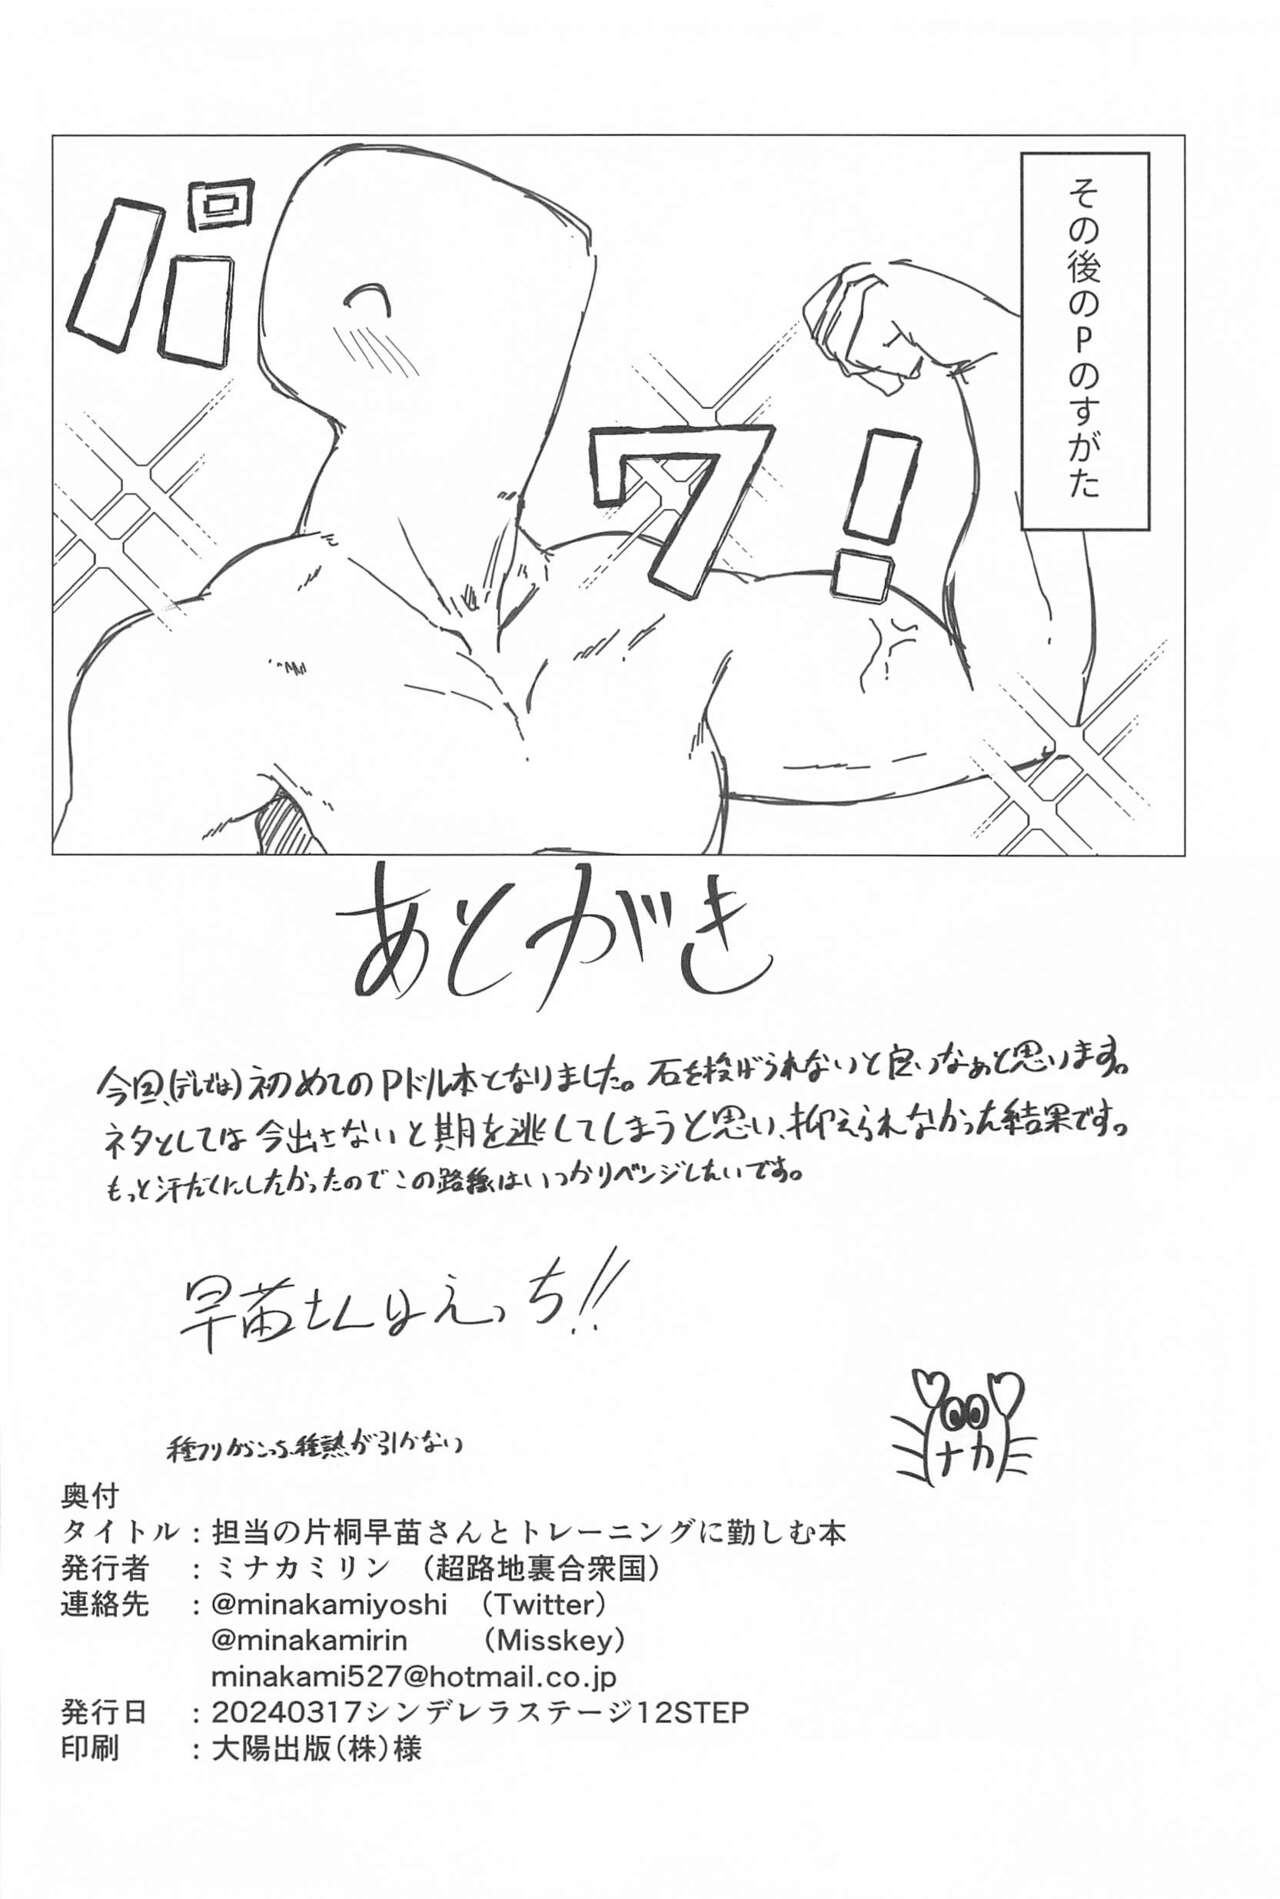 その後のPのすがた
パワ!
あとがき
今回、(デレでは)初めてのPドル本となりました。石を投げられないと良いなぁと思います。
ネタとしては今出さないと期を逃してしまうと思い、抑えられなかった結果です。
もっと汗だくにしたかったのでこの路線はいつかリベンジしたいです。
早苗さんはえっち!!
ナカ
奥付
タイトル：担当の片桐早苗さんとトレーニングに勤しむ本
発行者　：ミナカミリン　(超路地裏合衆国)
連絡先　：@minakamiyoshi　(Twitter)
@minakamirin　(Misskey)
minakami527@hotmail.co.jp
発行日　：20240317シンデレラステージ12STEP
印刷　　：大陽出版(株)様